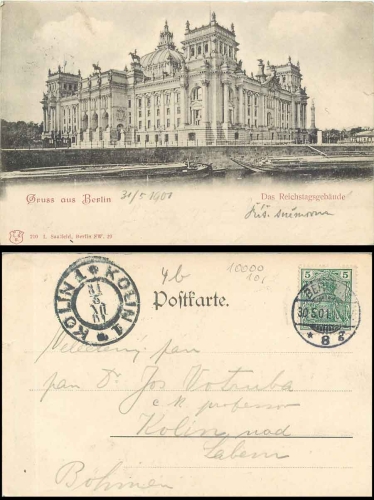 Gruss aus Berlin
31/5 1901
Das Reichstagsgebäude
L. Saalfeld, Berlin
KOLIN 1 * KOLIN 1
31
5
01
4b
10000
10,
Postkarte.
5 5
30.5.01
* 8
Velectěný pan
pan Dr. Jos Votruba
c.k. professor
Kolín nad
Labem
Böhmen